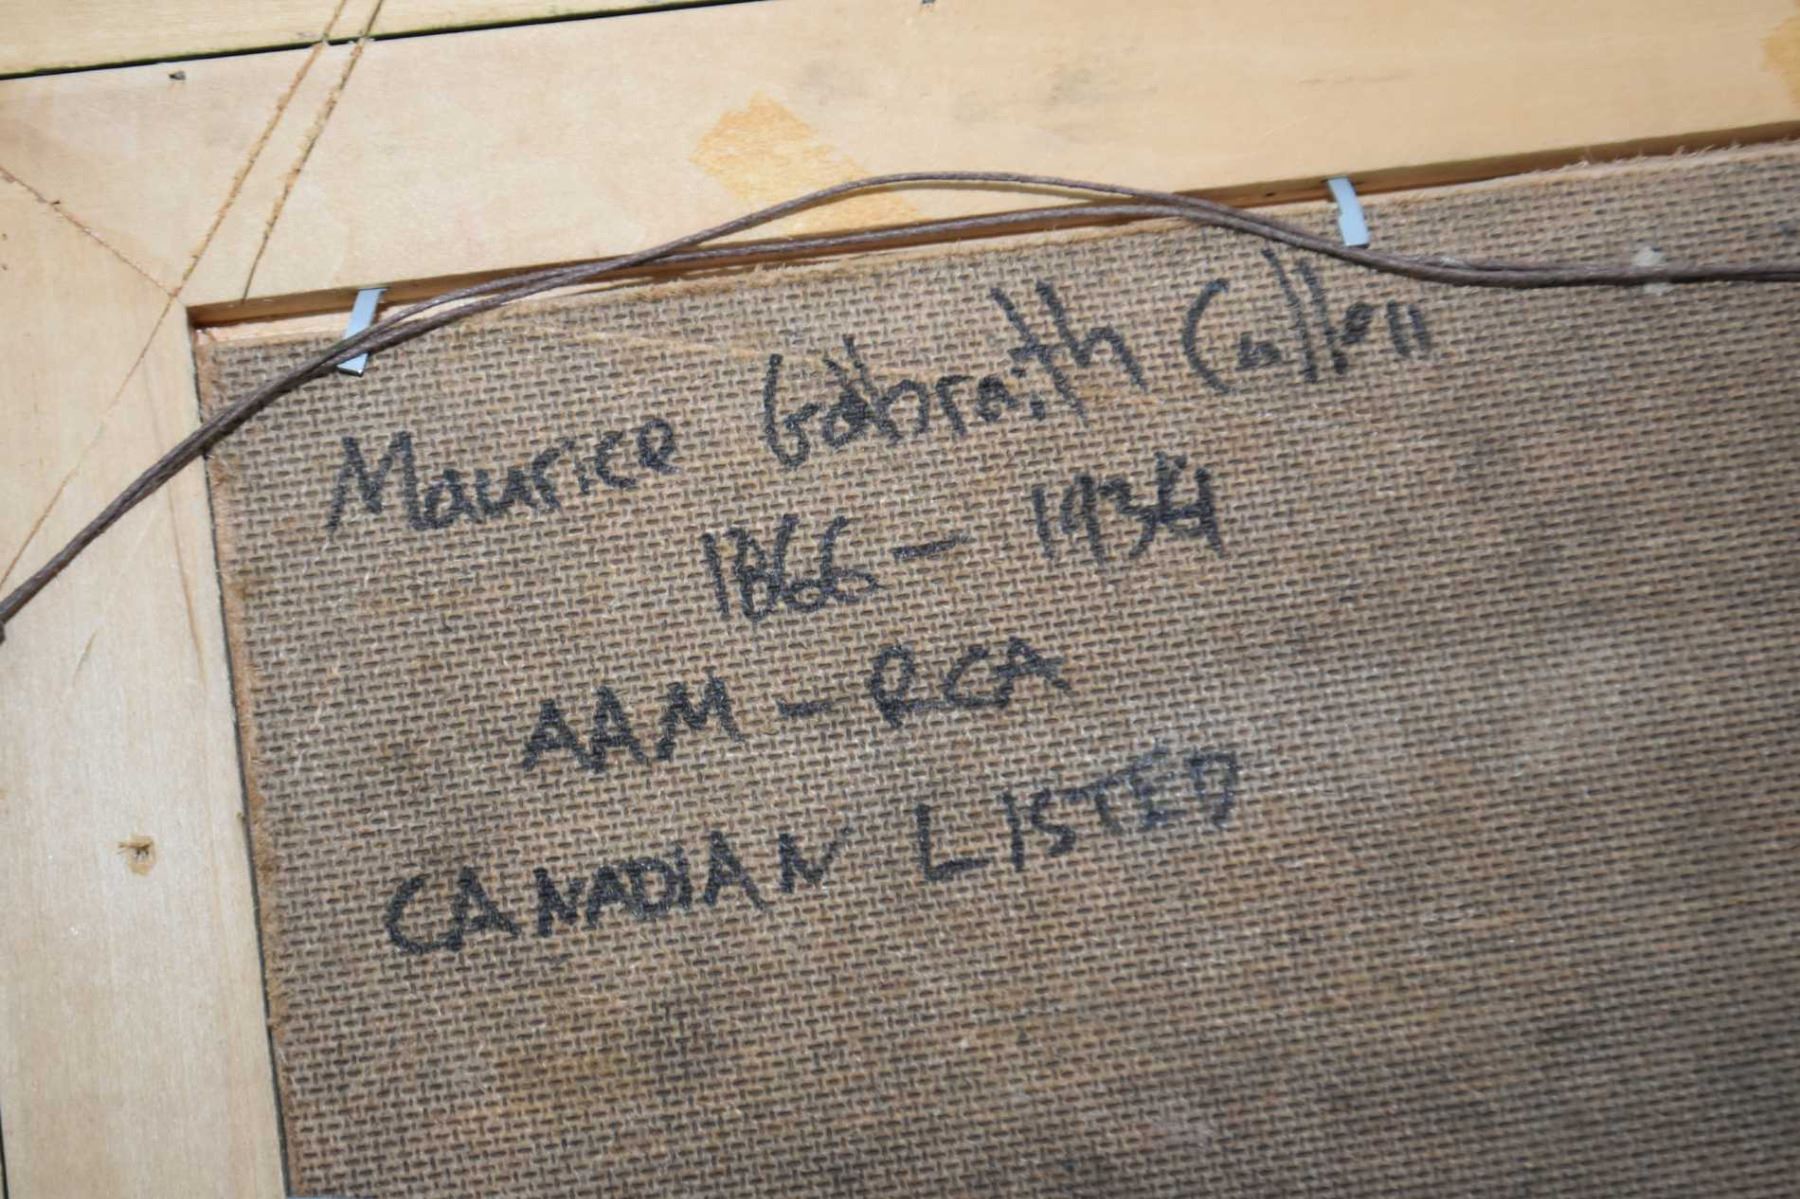 Maurice Galbraith Cullen
1866 - 1934
AAM - RCA
CANADIAN LISTED